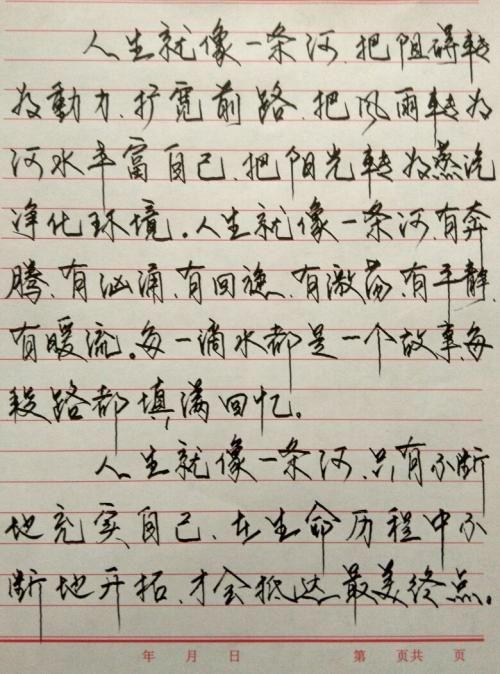 人生就像一条河、把阻碍转
为動力、扩宽前路、把风雨转为
河水丰富自己、把阳光转为蒸汽
净化环境。人生就像一条河、有奔
腾、有汹涌、有回旋、有激荡、有平静、
有暖流。每一滴水都是一个故事、每
段路都填满回忆。
人生就像一条河、只有不断
地充实自己、在生命历程中不
断地开拓、才会抵达最美终点。
年 月 日 第 页共 页